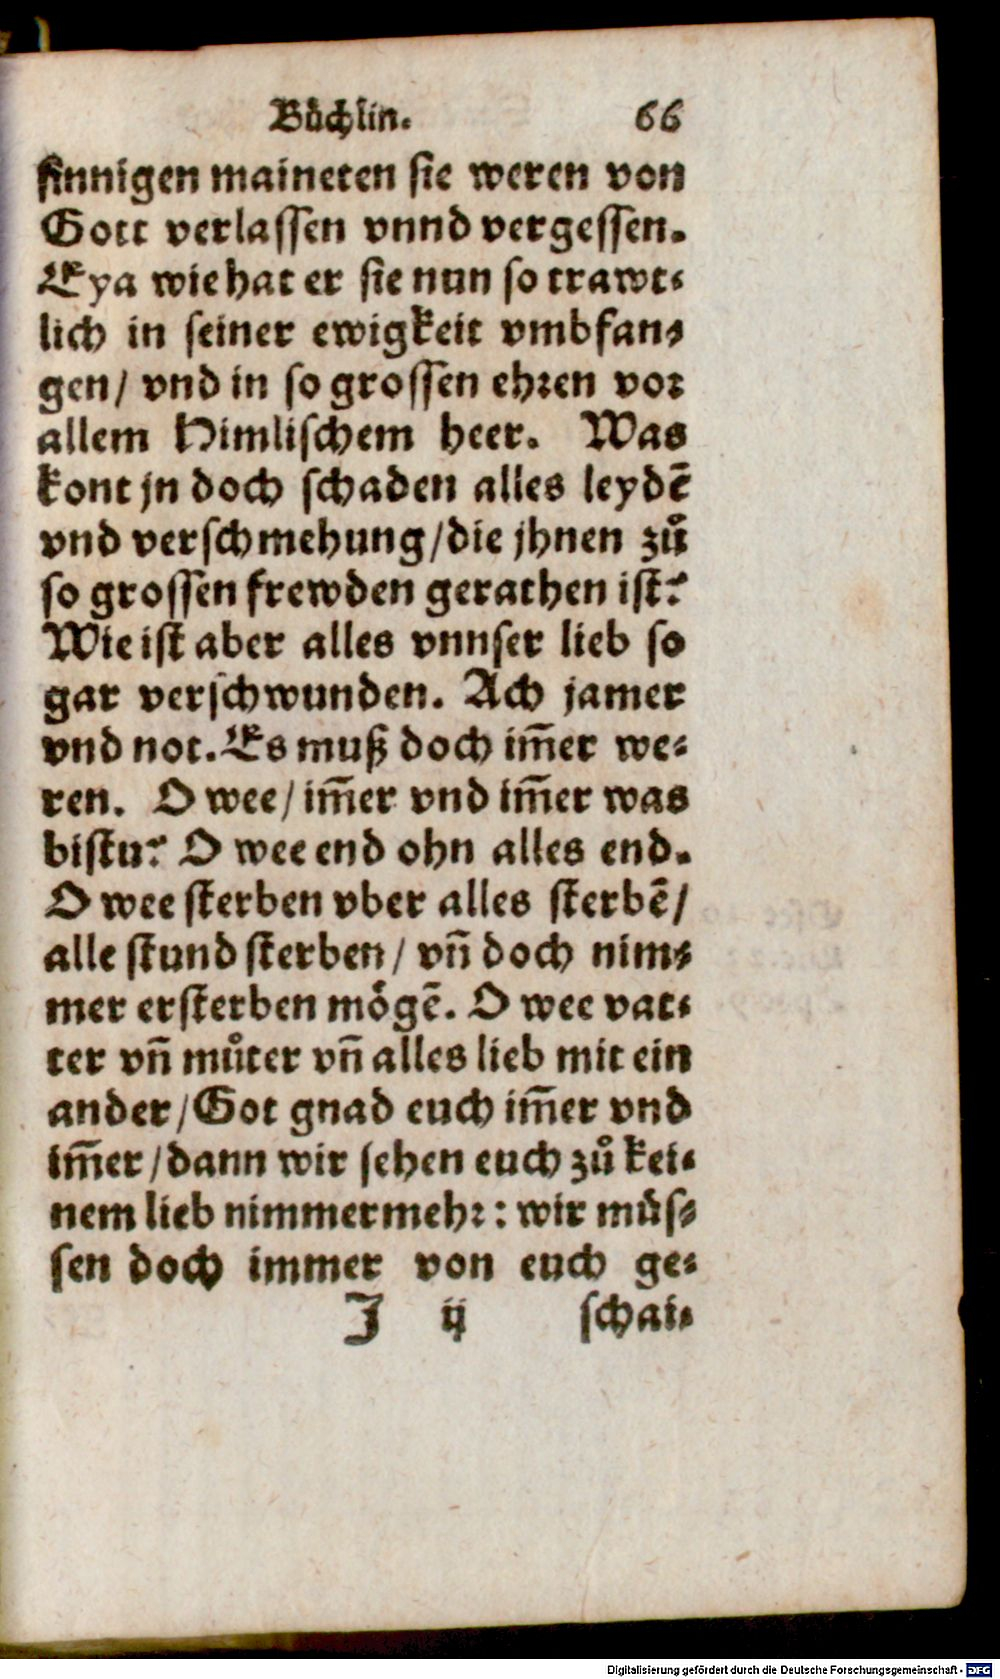 Bůchlin. 66
sinnigen maineten sie weren von
Gott verlassen vnnd vergessen.
Eya wie hat er sie nun so trawt-
lich in seiner ewigkeit vmbfan-
gen/ vnd in so grossen ehren vor
allem Himlischem heer. Was
kont jn doch schaden alles leydē
vnd verschmehung/die jhnen zů
so grossen frewden gerathen ist?
Wie ist aber alles vnnser lieb so
gar verschwunden. Ach jamer
vnd not. Es muß doch im̄er we-
ren. O wee/ im̄er vnd im̄er was
bistu? O wee end ohn alles end.
O wee sterben vber alles sterbē/
alle stund sterben/ vn̄ doch nim-
mer ersterben mögē. O wee vat-
ter vn̄ můter vn̄ alles lieb mit ein
ander/Got gnad euch im̄er vnd
im̄er/dann wir sehen euch zů kei-
nem lieb nimmermehr: wir můs-
sen doch immer von euch ge-
J ij schai-
Digitalisierung gefördert durch die Deutsche Forschungsgemeinschaft - DFG